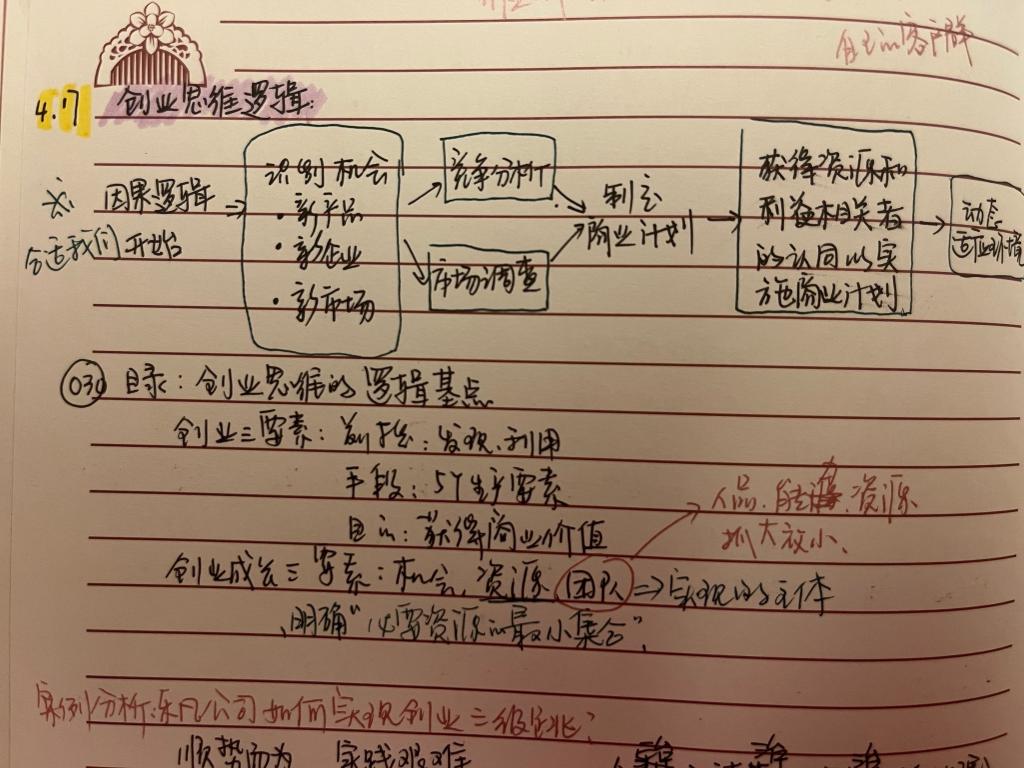 自己的客户群
4.17 创业思维逻辑:
因果逻辑
合适我们开始
识别机会
·新产品
·新企业
·新市场
竞争分析
市场调查
制定
商业计划
获得资源和
利益相关者
的认同以实
施商业计划
动态
适应环境
030 目录:创业思维的逻辑基点
创业三要素:前提:发现、利用
手段:5个生产要素
目的:获得商业价值
人品、能力、资源
抓大放小、
创业成长三要素:机会、资源 团队⇒实现的主体
明确“必要资源的最小集合”
案例分析:乐凡公司如何实现创业三级
顺势而为 实践艰难